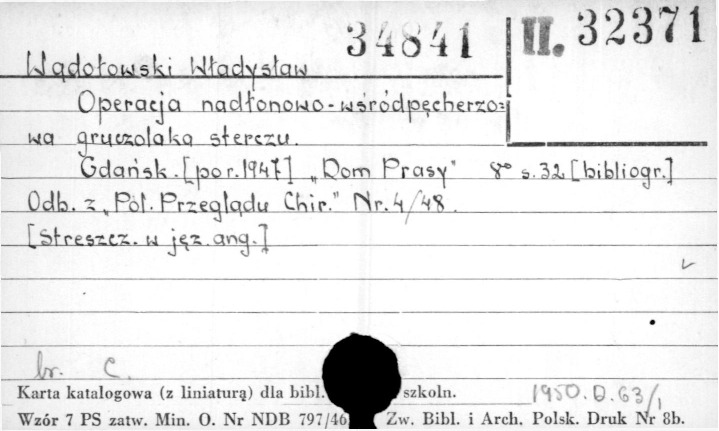 34841 II. 32371
Wądołowski Władysław
Operacja nadłonowo-wśródpęcherzo=
wa gruczolaka sterczu.
Gdańsk. [por. 1947] „Dom Prasy" 8° s. 32 [bibliogr.]
Odb. z „Pol. Przeglądu Chir." Nr. 4/48.
[Streszcz. w jęz. ang.]
br. C.
Karta katalogowa (z liniaturą) dla bibl. szkoln. 1950.D.63/1
Wzór 7 PS zatw. Min. O. Nr NDB 797/46 Zw. Bibl. i Arch. Polsk. Druk Nr 8b.